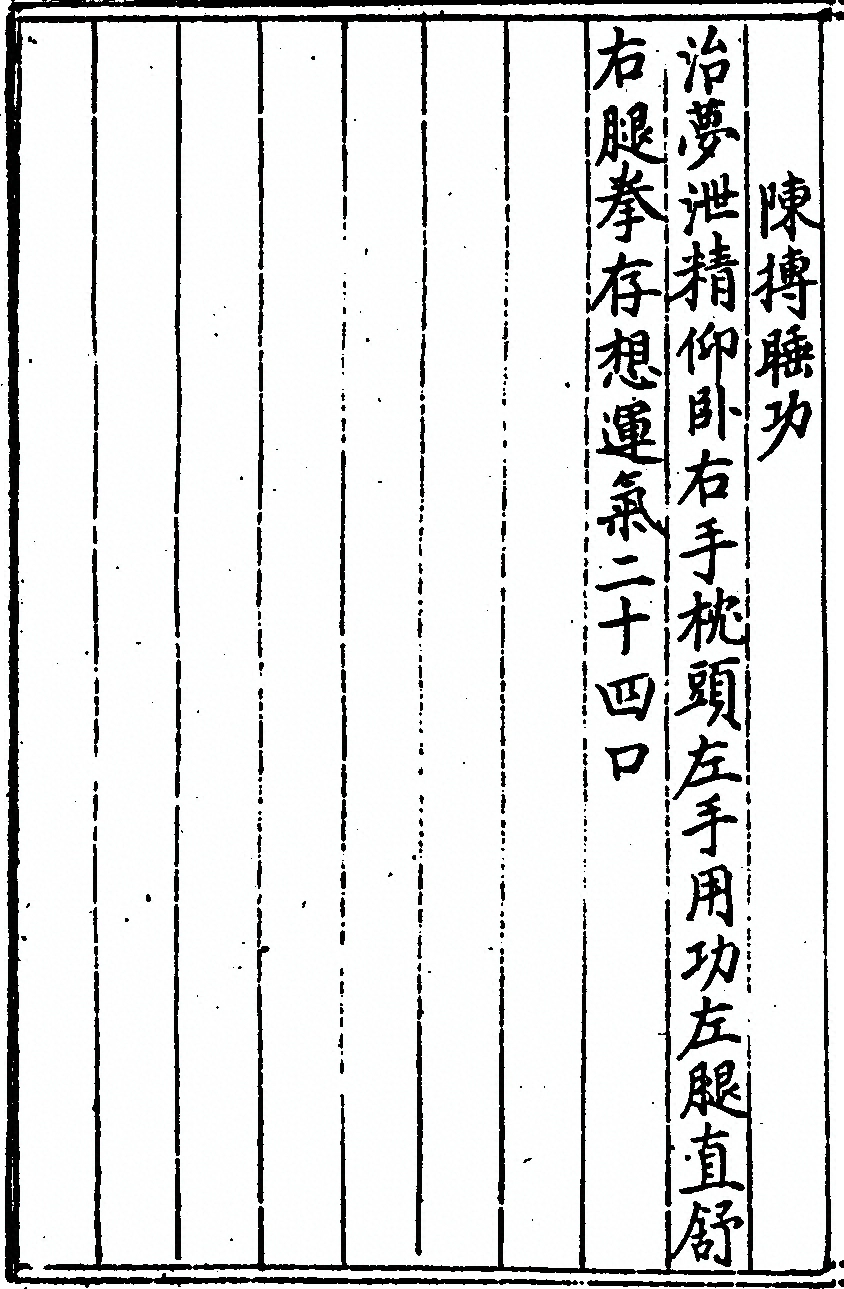 陳摶睡功
治夢泄精仰卧右手枕頭左手用功左腿直舒
右腿拳存想運氣二十四口